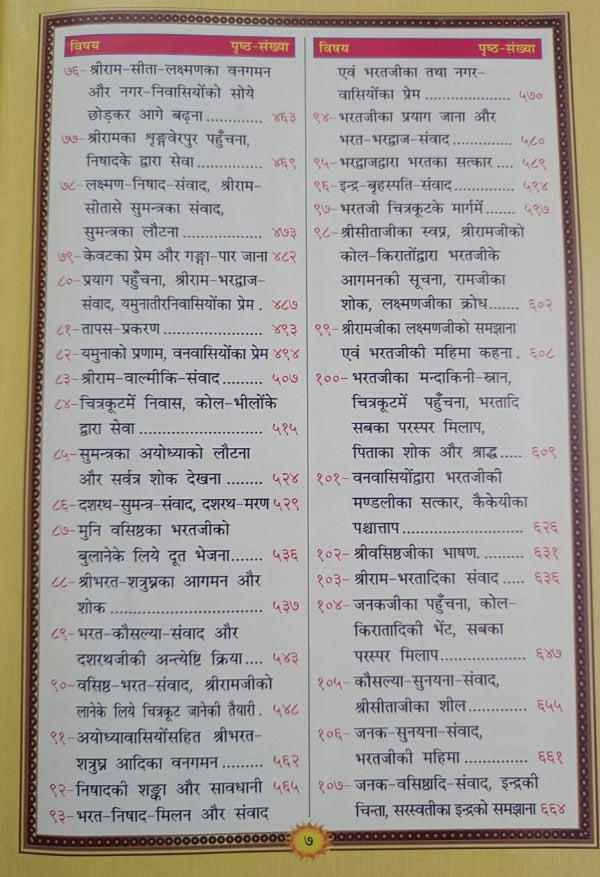 विषय पृष्ठ-संख्या
७६- श्रीराम-सीता-लक्ष्मणका वनगमन
और नगर-निवासियोंको सोये
छोड़कर आगे बढ़ना ............ ४६३
७७- श्रीरामका शृङ्गवेरपुर पहुँचना,
निषादके द्वारा सेवा .............. ४६९
७८- लक्ष्मण-निषाद-संवाद, श्रीराम-
सीतासे सुमन्त्रका संवाद,
सुमन्त्रका लौटना ................ ४७३
७९- केवटका प्रेम और गङ्गा-पार जाना ४८२
८०- प्रयाग पहुँचना, श्रीराम-भरद्वाज-
संवाद, यमुनातीरनिवासियोंका प्रेम . ४८७
८१- तापस-प्रकरण ..................... ४९३
८२- यमुनाको प्रणाम, वनवासियोंका प्रेम ४९४
८३- श्रीराम-वाल्मीकि-संवाद ......... ५०७
८४- चित्रकूटमें निवास, कोल-भीलोंके
द्वारा सेवा ......................... ५१५
८५- सुमन्त्रका अयोध्याको लौटना
और सर्वत्र शोक देखना ......... ५२४
८६- दशरथ-सुमन्त्र-संवाद, दशरथ-मरण ५२९
८७- मुनि वसिष्ठका भरतजीको
बुलानेके लिये दूत भेजना....... ५३६
८८- श्रीभरत-शत्रुघ्नका आगमन और
शोक ................................ ५३७
८९- भरत-कौसल्या-संवाद और
दशरथजीकी अन्त्येष्टि क्रिया.... ५४३
९०- वसिष्ठ-भरत-संवाद, श्रीरामजीको
लानेके लिये चित्रकूट जानेकी तैयारी . ५४८
९१- अयोध्यावासियोंसहित श्रीभरत-
शत्रुघ्न आदिका वनगमन ......... ५६२
९२- निषादकी शङ्का और सावधानी ५६५
९३- भरत-निषाद-मिलन और संवाद
विषय पृष्ठ-संख्या
एवं भरतजीका तथा नगर-
वासियोंका प्रेम .................. ५७०
९४- भरतजीका प्रयाग जाना और
भरत-भरद्वाज-संवाद ............ ५८०
९५- भरद्वाजद्वारा भरतका सत्कार .... ५८९
९६- इन्द्र-बृहस्पति-संवाद ............. ५९४
९७- भरतजी चित्रकूटके मार्गमें ...... ५९७
९८- श्रीसीताजीका स्वप्न, श्रीरामजीको
कोल-किरातोंद्वारा भरतजीके
आगमनकी सूचना, रामजीका
शोक, लक्ष्मणजीका क्रोध....... ६०२
९९- श्रीरामजीका लक्ष्मणजीको समझाना
एवं भरतजीकी महिमा कहना . ६०८
१००- भरतजीका मन्दाकिनी-स्नान,
चित्रकूटमें पहुँचना, भरतादि
सबका परस्पर मिलाप,
पिताका शोक और श्राद्ध ..... ६०९
१०१- वनवासियोंद्वारा भरतजीकी
मण्डलीका सत्कार, कैकेयीका
पश्चात्ताप .......................... ६२६
१०२- श्रीवसिष्ठजीका भाषण. ......... ६३१
१०३- श्रीराम-भरतादिका संवाद ..... ६३६
१०४- जनकजीका पहुँचना, कोल-
किरातादिकी भेंट, सबका
परस्पर मिलाप .................... ६४७
१०५- कौसल्या-सुनयना-संवाद,
श्रीसीताजीका शील.............. ६५५
१०६- जनक-सुनयना-संवाद,
भरतजीकी महिमा .............. ६६१
१०७- जनक-वसिष्ठादि-संवाद, इन्द्रकी
चिन्ता, सरस्वतीका इन्द्रको समझाना ६६४
७